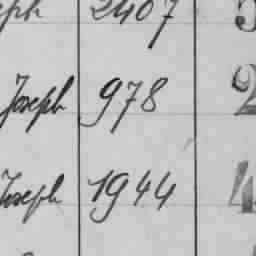 2407
Joseph 978 2
Joseph 1944 4